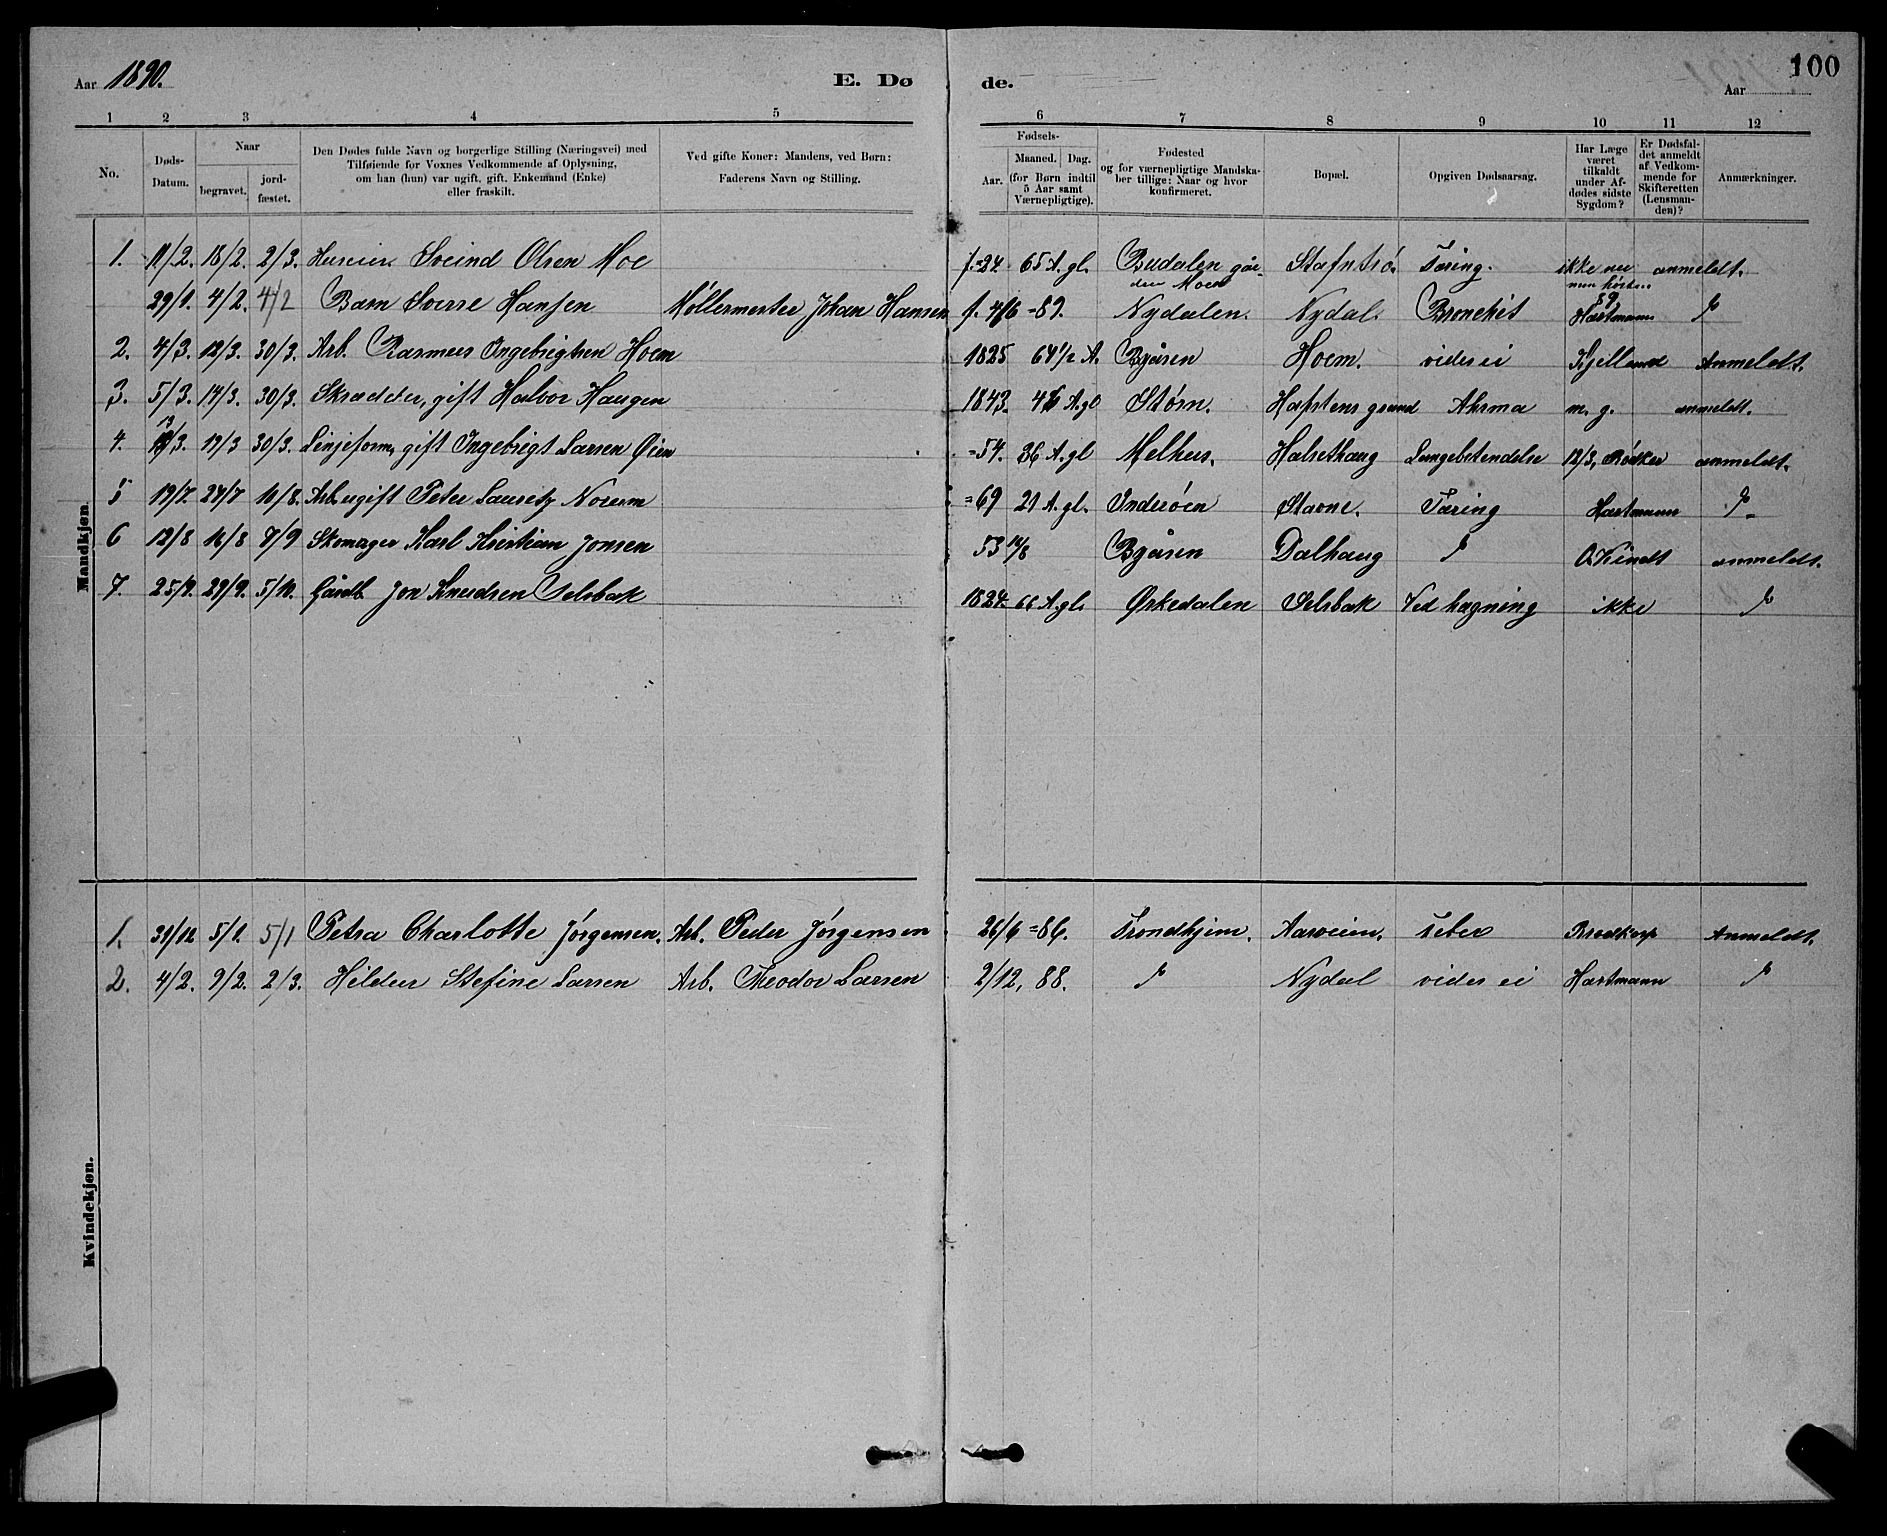 Aar 1890. E. Dø de. Aar 100
1 2 3 4 5 6 7 8 9 10 11 12
No. Døds-Datum. Naar begravet. jordfæstet. Den Dødes fulde Navn og borgerlige Stilling (Næringsvei) med Tilføiende for Voxnes Vedkommende af Oplysning, om han (hun) var ugift, gift, Enkemand (Enke) eller fraskilt. Ved gifte Koner: Mandens, ved Børn: Faderens Navn og Stilling. Fødsels- Aar. Maaned. Dag. (for Børn indtil 5 Aar samt Værnepligtige). Fødested og for værnepligtige Mandskaber tillige: Naar og hvor konfirmeret. Bopæl. Opgiven Dødsaarsag. Har Læge været tilkaldt under Afdødes sidste Sygdom? Er Dødsfaldet anmeldt af Vedkommende for Skifteretten (Lensmanden)? Anmærkninger.
Mandkjøn.
1. 11/2. 18/2. 2/3. Svend Olsen Moe f. =24 65 A. gl. Budalen går- den Moen Tæring. ikke nu anmeldt.
29/1. 4/2. 4/2 Barn Sverre Hansen Møllermester Johan Hansen f. 4/6 =89. Nydalen. Nydal. Bronchit Hartmann
2. 4/3. 12/3. 30/3. Arb. Rasmus Ingebrigtsen Hoem 1825 64 1/2 A. Byåsen Hoem. vides ei Kjelland Anmeldt.
3. 5/3. 14/3. 30/3. Skrædder, gift Halvor Haugen 1843. 46 A. gl Støren. Hafstens grund Ahsma m. g. anmeldt.
4. 13/3. 19/3 30/3. Linjeform, gift Ingebrigt Larsen Øien =54. 36 A. gl Melhus. Halsethaug Lungebetendelse 12/3, Rødker anmeldt.
5 19/7. 24/7 10/8. Arb. ugift Peter Lauretz =69 21 A. gl. Inderøen Stavne. Tæring Hartmann
6 12/8 16/8 7/9 Skomager Karl Kristian Jonsen 53 14/8 Byåsen Dalhaug Kindt anmeldt.
7. 25/9. 29/9. 5/10. Gårdb. Jon Knudsen Selsbak 1824. 66 A. gl. Ørkedalen Selsbak Ved hægning ikke
Kvindekjøn.
1. 31/12 5/1. 5/1 Petra Charlotte Jørgensen. Arb. Peder Jørgensen 26/6 =86. Trondhjem. Aasveien. Feber Anmeldt.
2. 4/2. 9/2. 2/3. Hilder Stefine Larsen Arb. Theodor Larsen 2/12, 88. Nydal vides ei Hartmann